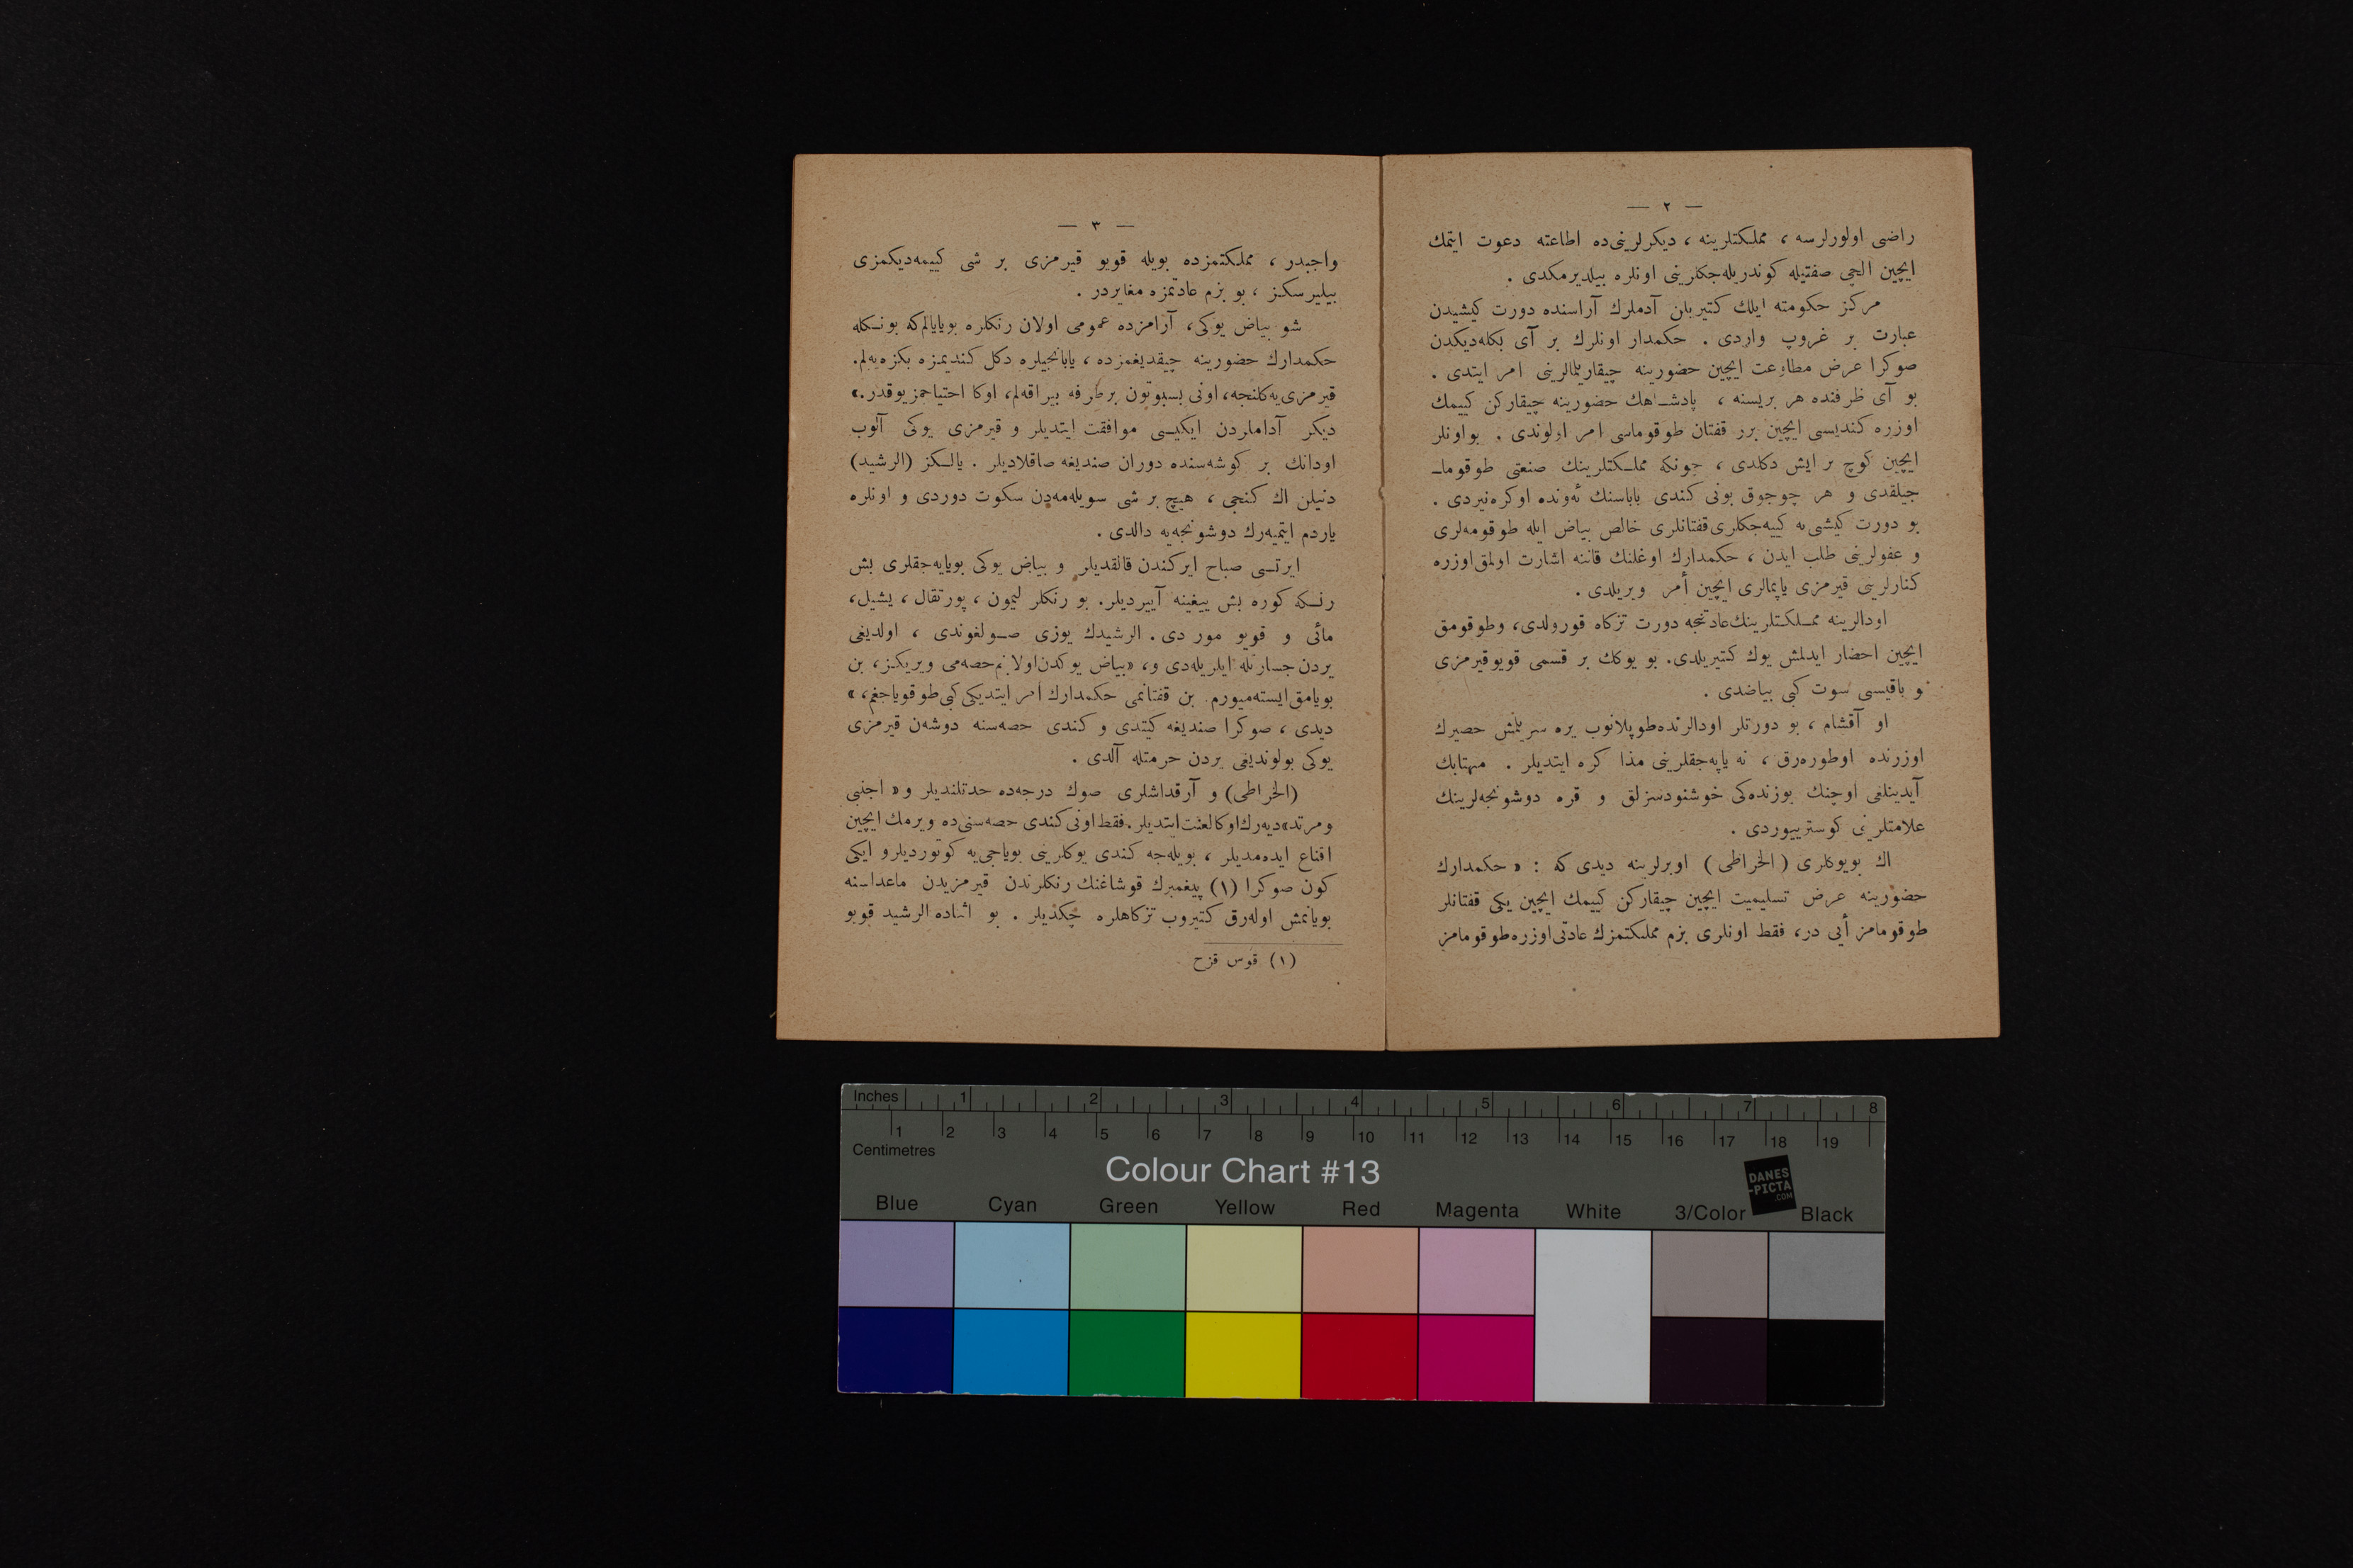 — ٢ —
راضی اولورلرسه ، مملكتلرینه ، دیكرلرینی‌ده اطاعته دعوت ایتمك
ایچین الچی صفتیله كوندریله‌جكلرینی اونلره بیلدیرمكدی .
مركز حكومته ایلك كتیریان آدملرك آراسنده دورت كیشیدن
عبارت بر غروپ واردی . حكمدار اونلرك بر آی بكله‌دیكدن
صوكرا عرض مطاوعت ایچین حضورینه چیقاریلمالرینی امر ایتدی .
بو آی ظرفنده هر بریسنه ، پادشـاهك حضورینه چیقاركن كییمك
اوزره كندیسی ایچین برر قفتان طوقوماسی امر اولوندی . بواونلر
ایچین كوچ بر ایش دكلدی ، چونكه مملـكتلرینك صنعتی طوقوماـ
جیلقدی و هر چوجوق بونی كندی باباسنك ئه‌ونده اوكره‌نیردی .
بو دورت كیشی‌یه كییه‌جكلری قفتانلری خالص بیاض ایله طوقومه‌لری
و عفولرینی طلب ایدن ، حكمدارك اوغلنك قاننه اشارت اولمق اوزره
كنارلرینی قیرمزی یاپمالری ایچین أمر ویریلدی .
اودالرینه ممـلـكتلرینك‌عادتنجه دورت تزكاه قورولدی، وطوقومق
ایچین احضار ایدلمش یوك كتیریلدی. بو یوكك بر قسمی قویوقیرمزی
و باقیسی سوت كبی بیاضدی .
او آقشام ، بو دورتلر اودالرنده‌طوپلانوب یره سریلمش حصیرك
اوزرنده اوطوره‌رق ، نه یاپه‌جقلرینی مذا كره ایتدیلر . مهتابك
آیدینلغی اوچنك یوزنده‌كی خوشنودسزلق و قره دوشونجه‌لرینك
علامتلرینی كوسترییوردی .
اك بویوكلری ( الخراطی ) اوبرلرینه دیدی كه : « حكمدارك
حضورینه عرض تسلیمیت ایچین چیقاركن كییمك ایچین یكی قفتانلر
طوقومامز أیی در، فقط اونلری بزم مملكتمزك عادتی‌اوزره‌طوقومامز
— ٣ —
واجبدر ، مملكتمزده بویله قویو قیرمزی بر شی كییمه‌دیكمزی
بیلیرسكز ، بو بزم عادتمزه مغایردر .
شو بیاض یوكی، آرامزده عمومی اولان رنكلره بویایالم‌كه بونـكله
حكمدارك حضورینه چیقدیغمزده ، یابانجیلره دكل كندیمزه بكزه‌یه‌لم.
قیرمزی‌یه‌كلنجه، اونی بسبوتون برطرفه بیراقه‌لم، اوكا احتیاجمزیوقدر.»
دیكر آداملردن ایكیـسی موافقت ایتدیلر و قیرمزی یوكی آلوب
اودانك بر كوشه‌سنده دوران صندیغه صاقلادیلر . یالـكز (الرشید)
دنیلن اك كنجی ، هیچ بر شی سویله‌مه‌دن سكوت دوردی و اونلره
یاردم ایتمیه‌رك دوشونجه‌یه دالدی .
ایرتـسی صباح ایركندن قالقدیلر و بیاض یوكی بویایه‌جقلری بش
رنـكه كوره بش ییغینه آییردیلر. بو رنكلر لیمون ، پورتقال ، یشیل،
مائی و قویو مور دی. الرشیدك یوزی صـولغوندی ، اولدیغی
یردن جسارتله ایلریله‌دی و، «بیاض یوكدن‌اولا‌نم‌حصه‌می ویریكز، بن
بویامق‌ایسته‌میورم. بن قفتانمی حكمدارك امر ایتدیكی كبی‌طوقویاجغم، »
دیدی ، صوكرا صندیغه كیتدی و كندی حصه‌سنه دوشه‌ن قیرمزی
یوكی بولوندیغی یردن حرمتله آلدی .
(الخراطی) و آرقداشلری صوك درجه‌ده حدتلندیلر و « اجنبی
ومرتد»دیه‌رك‌اوكالعنت‌ایتدیلر.فقط‌اونی‌كندی حصه‌سنی‌ده ویرمك ایچین
اقناع ایده‌مدیلر ، بویله‌جه كندی یوكلرینی بویاجی‌یه كوتوردیلرو ایكی
كون صوكرا (١) پیغمبرك قوشاغنك رنكلرندن قیرمزیدن ماعداسنه
بویانمش اوله‌رق كتیروب تزكاهلره چكدیلر . بو اثناده الرشید قویو
(١) قوس قزح
Inches 1 2 3 4 5 6 7 8
1 2 3 4 5 6 7 8 9 10 11 12 13 14 15 16 17 18 19
Centimetres
Colour Chart #13
DANES
-PICTA
.COM
Blue Cyan Green Yellow Red Magenta White 3/Color Black